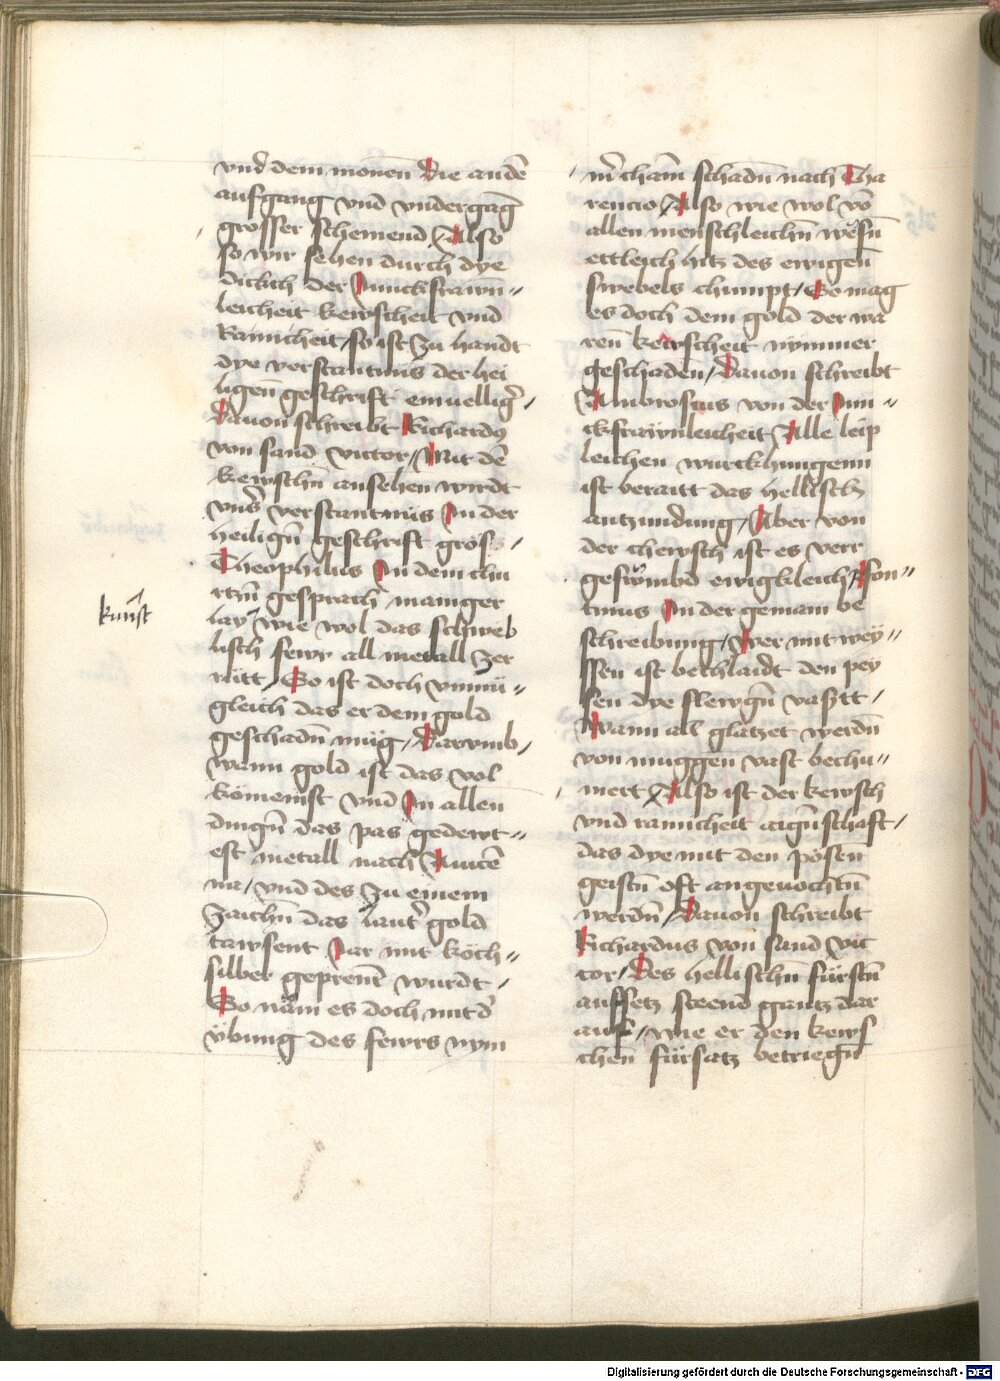 vnd dem monen Die ander
aufgang vnd vndergang
grosser schemend Also
so wir sehen durch dye
dickch der Junckfrawn„
leicheit kewscheit vnd
Rainicheit so ist zu handt
dye verstantnüs der hei
ligen geschrift
Dauon schreibt Richardus
von sand victor Mit den
kewschn ansehen wirdt
vnser verstantnüs In der
heiligen geschrift gros
Theophilus In dem
gesprach maniger
lay wie wol das schweb
lisch fewr all metall zer
rütt So ist doch vnmü„
gleich das er dem gold
geschaden müg Darvmb
wann gold ist das vol
kömenist vnd In allen
dingen das pas gedewt„
est metall nach Auicen
na vnd des zu einem
zaichn das lauter gold
tawsent Jar mit köch„
silber geprennt wurdt
So näm es doch mit der
vbung des fewrs nym
kunst
schadn nach Tha
rencio Also wie wol von
allen menschleichn wesen
ettleich hitz des ewigen
swebels chumpt So mag
es doch dem gold der wa
ren kewscheit nymmer
geschaden Dauon schreibt
Ambrosius von der Jun„
ckfrawnleicheit Alle leip
leichen wurckhungenn
ist beraitt das hellisch
antzundung Aber von
der chewsch ist es verr
geswmbd ewigkleich Ason„
tinus In der gemain be
schreibung Wer mit wey„
ssen ist bechlaidt den pey
sen dye flewgen vast
Wann all glatzet werdn
von muggen vast bechu„
mert Also ist der kewsch
vnd rainicheit aigenschaft
das dye mit den pösen
geistn oft angeuochten
werdn Dauon schreibt
Richardus von sand vic
tor Des hellischn fürsten
aufsetz steend gantz dar
auf wie er den kews
chen fürsatz betriegn
Digitalisierung gefördert durch die Deutsche Forschungsgemeinschaft - DFG